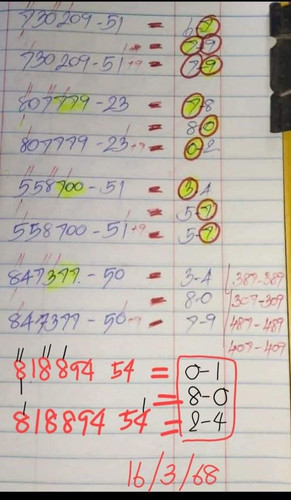 730209-51 = 6-7
= 7-9
730209-51+9 = 7-9
807779-23 = 7-8
= 8-0
807779-23+9 = 0-2
558700-51 = 3-4
= 5-7
558700-51+9 = 5-7
847377-50 = 3-4 387-389
= 8-0 307-309
847377-50+9 = 7-9 487-489
407-409
818894 54 = 0-1
= 8-0
818894 54 = 2-4
16/3/68